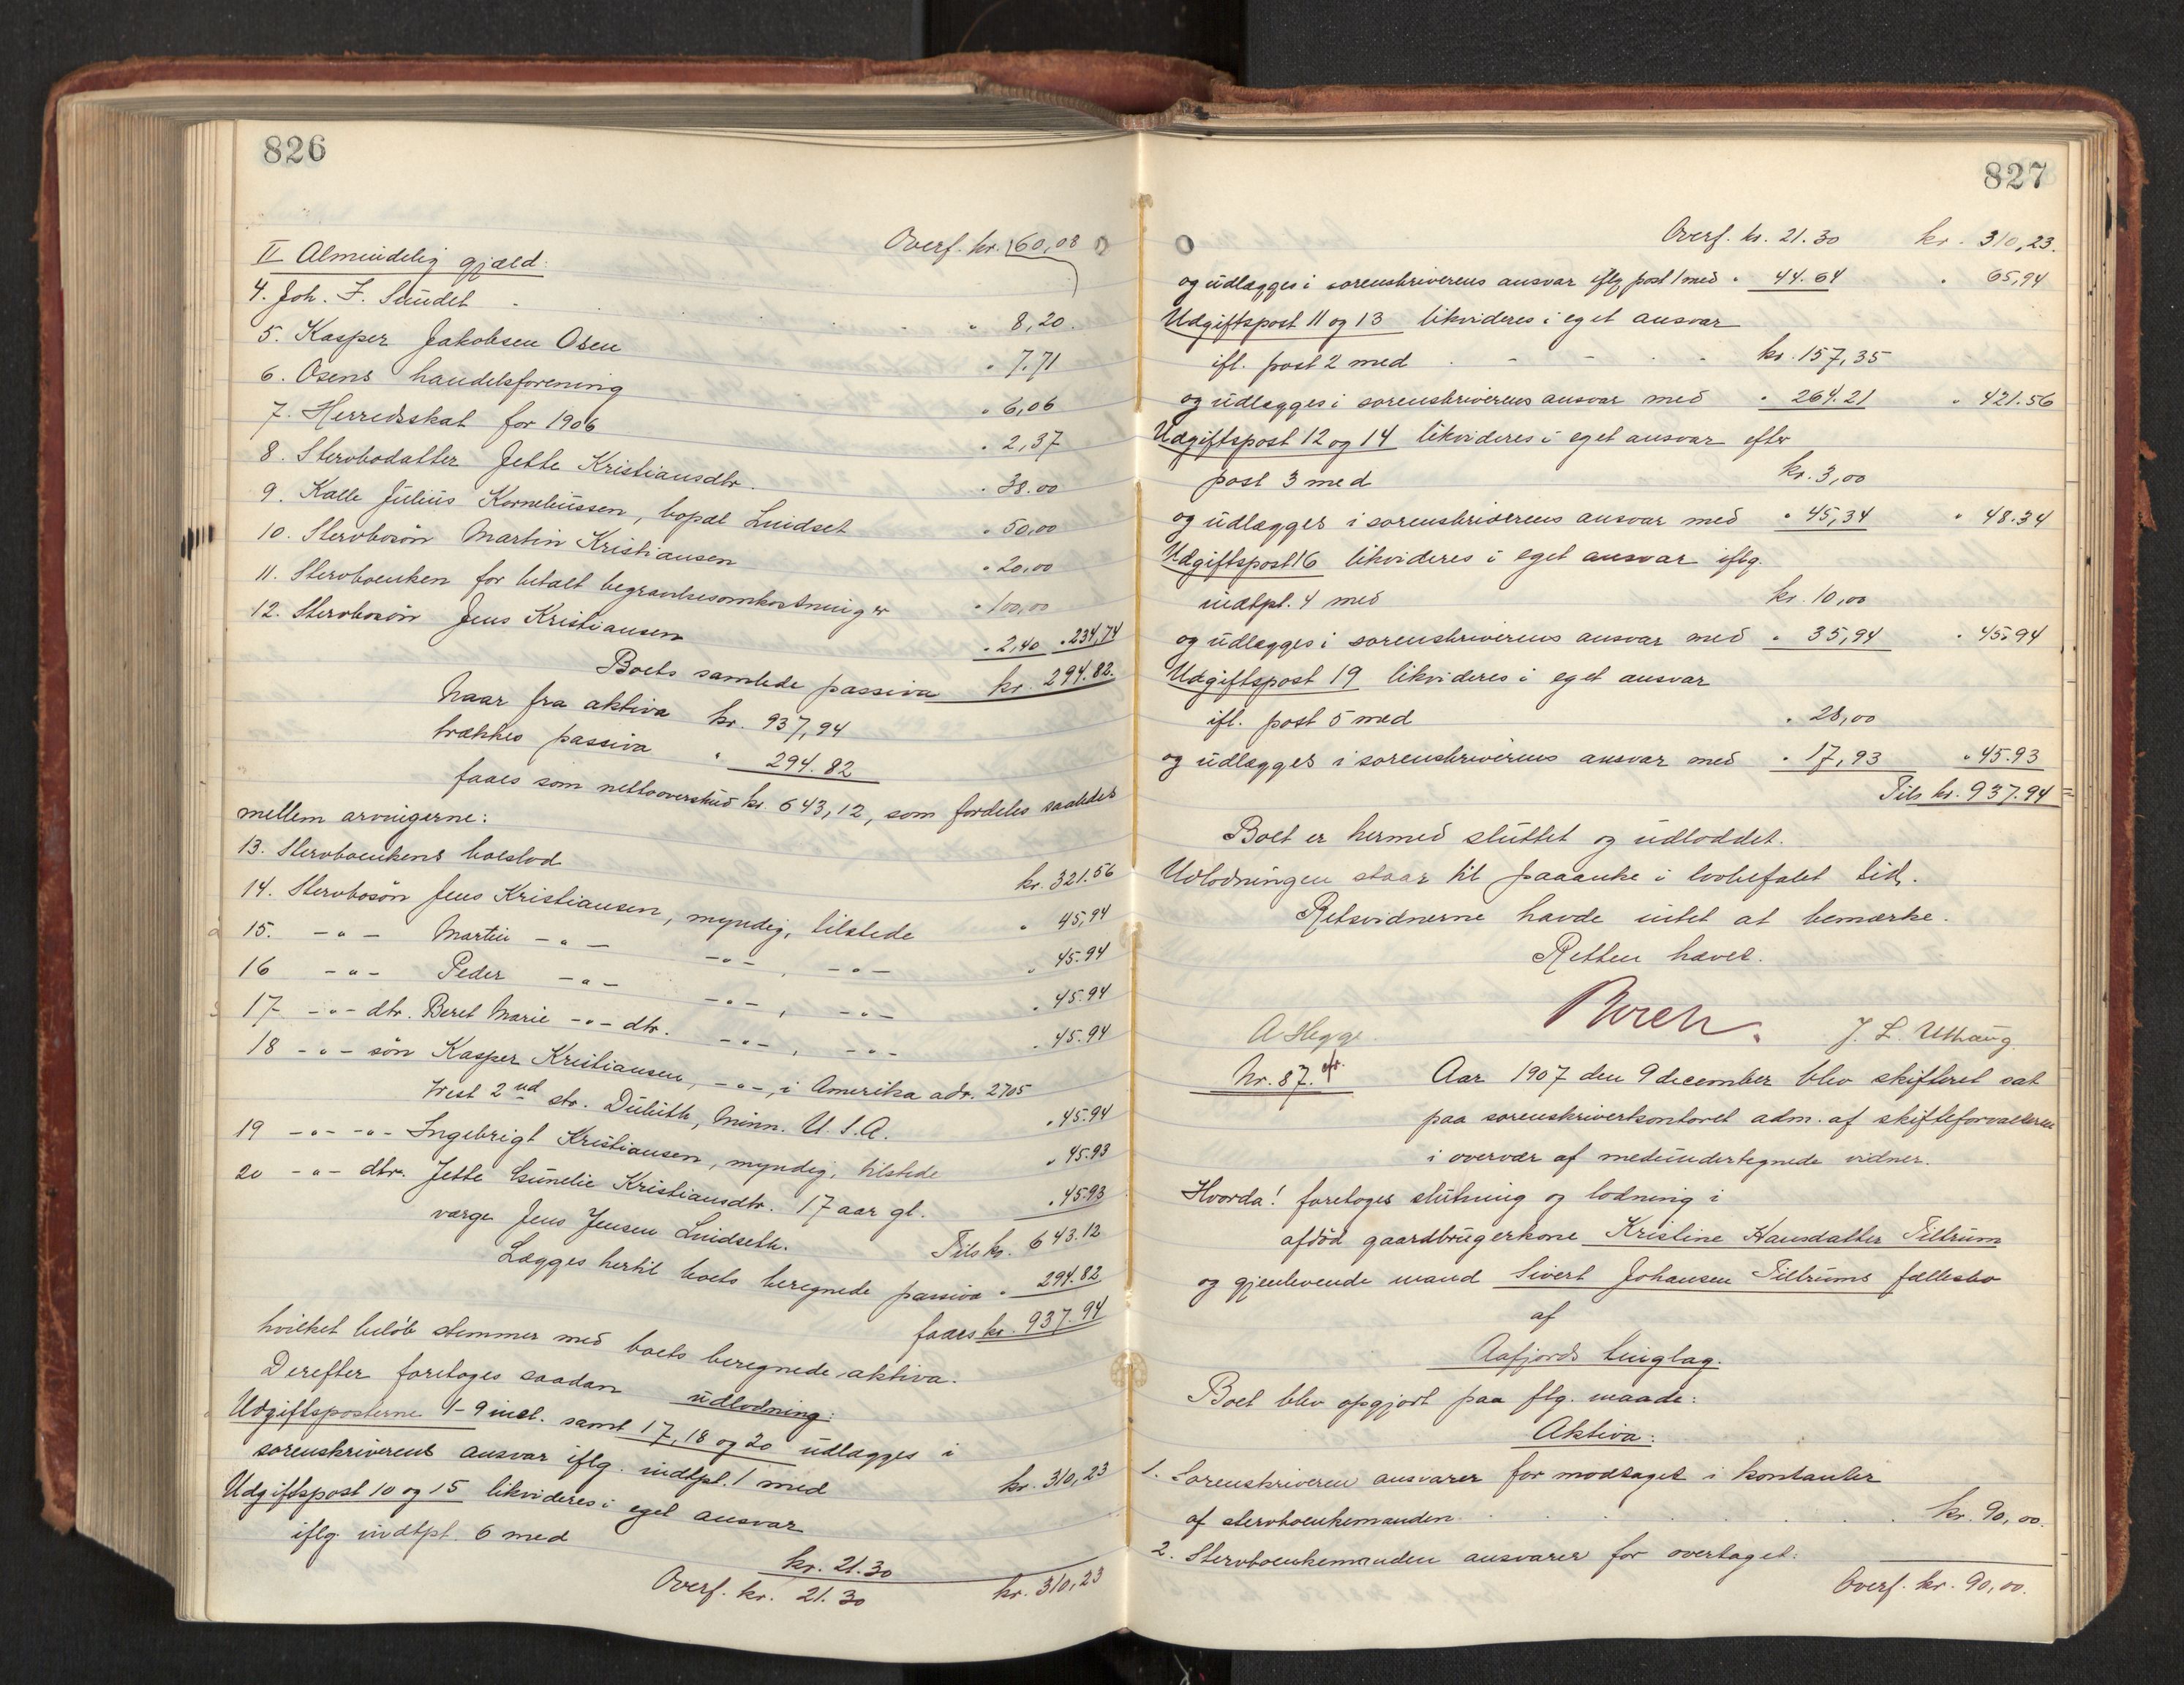 826
Overf. kr. 60,08
II Almindelig gjæld:
4. Joh. F. Sundet " 8,20
5. Kasper Jakobsen Osen " 7.71
6. Osens handelsforening " 6,06
7. Herredsskat for 1906 " 2,37
8. Stervbodatter Jette Kristiansdtr. " 38.00
9. Kalle Julius Korneliussen, bopæl Lindset " 50,00
10. Stervbosön Martin Kristiansen " 20,00
11. Stervboenken for betalt begravelsesomkostninger " 100,00
12. Stervbosön Jens Kristiansen " 2,40 " 234,74
Boets samlede passiva kr. 294.82.
Naar fra aktiva kr. 937,94
trækkes passiva " 294.82
faaes som nettooverskud kr. 643,12, som fordeles saaledes
mellem arvingerne:
13. Stervboenkens boeslod kr. 321.56
14. Stervbosön Jens Kristiansen, myndig, tilstede " 45,94
15. -"- Martin -"- -"-, -"- " 45.94
16 -"- Peder -"- -"-, -"- " 45.94
17 -"- dtr. Beret Marie -"- dtr. -"-, -"- " 45.94
18 -"- sön Kasper Kristiansen, -"-, i Amerika adr. 2705
West 2nd str. Duluth, Minn. U.S.A. " 45.94
19 -"- -"- Ingebrigt Kristiansen, myndig, tilstede " 45.93
20 -"- dtr. Jette Gunelie Kristiansdtr. 17 aar gl. " 45.93
værge Jens Jensen Lindseth. Tils kr. 643.12
Lægges hertil boets beregnede passiva " 294.82
faaes kr. 937.94
hvilket belöb stemmer med boets beregnede aktiva.
Derefter foretoges saadan udlodning:
Udgiftsposterne 1-9 incl. samt 17, 18 og 20 udlægges i
sorenskriverens ansvar iflg. indtpt. 1 med kr. 310,23
Udgiftspost 10 og 15 likvideres i eget ansvar
iflg. indtpt. 6 med kr. 21.30
Overf. kr. 21.30 kr. 310,23
827
Overf. kr. 21.30 kr. 310,23.
og udlægges i sorenskriverens ansvar iflg. post 1 med " 44.64 " 65,94
Udgiftspost 11 og 13 likvideres i eget ansvar
ifl. post 2 med kr. 157,35
og udlægges i sorenskriverens ansvar med " 264.21 " 421.56
Udgiftspost 12 og 14 likvideres i eget ansvar efter
post 3 med kr. 3,00
og udlægges i sorenskriverens ansvar med " 45,34 " 48.34
Udgiftspost 16 likvideres i eget ansvar iflg.
indtpt. 4 med kr. 10,00
og udlægges i sorenskriverens ansvar med " 35,94 " 45.94
Udgiftspost 19 likvideres i eget ansvar
ifl. post 5 med " 28,00
og udlægges i sorenskriverens ansvar med " 17,93 " 45.93
Tils kr. 937.94
Boet er hermed sluttet og udloddet.
Udlodningen staar til paaanke i lovbefalet tid.
Retsvidnerne havde intet at bemærke.
Retten hævet.
A Hegge. J. L. Uthaug.
Nr. 87. Aar 1907 den 9 december blev skifteret sat
paa sorenskriverkontoret adm. af skifteforvalteren
i overvær af medundertegnede vidner.
Hvorda! foretoges slutning og lodning i
afdöd gaardbrugerkone Kristine Hansdatter Tiltrum
og gjenlevende mand Sivert Johansen Tiltrums fællesbo
af
Aafjords tinglag.
Boet blev opgjort paa flg. maade:
Aktiva:
1. Sorenskriveren ansvarer for modtaget i kontanter
af stervboenkemanden kr. 90,00.
2. Stervboenkemanden ansvarer for overtaget:
Overf. kr. 90,00.